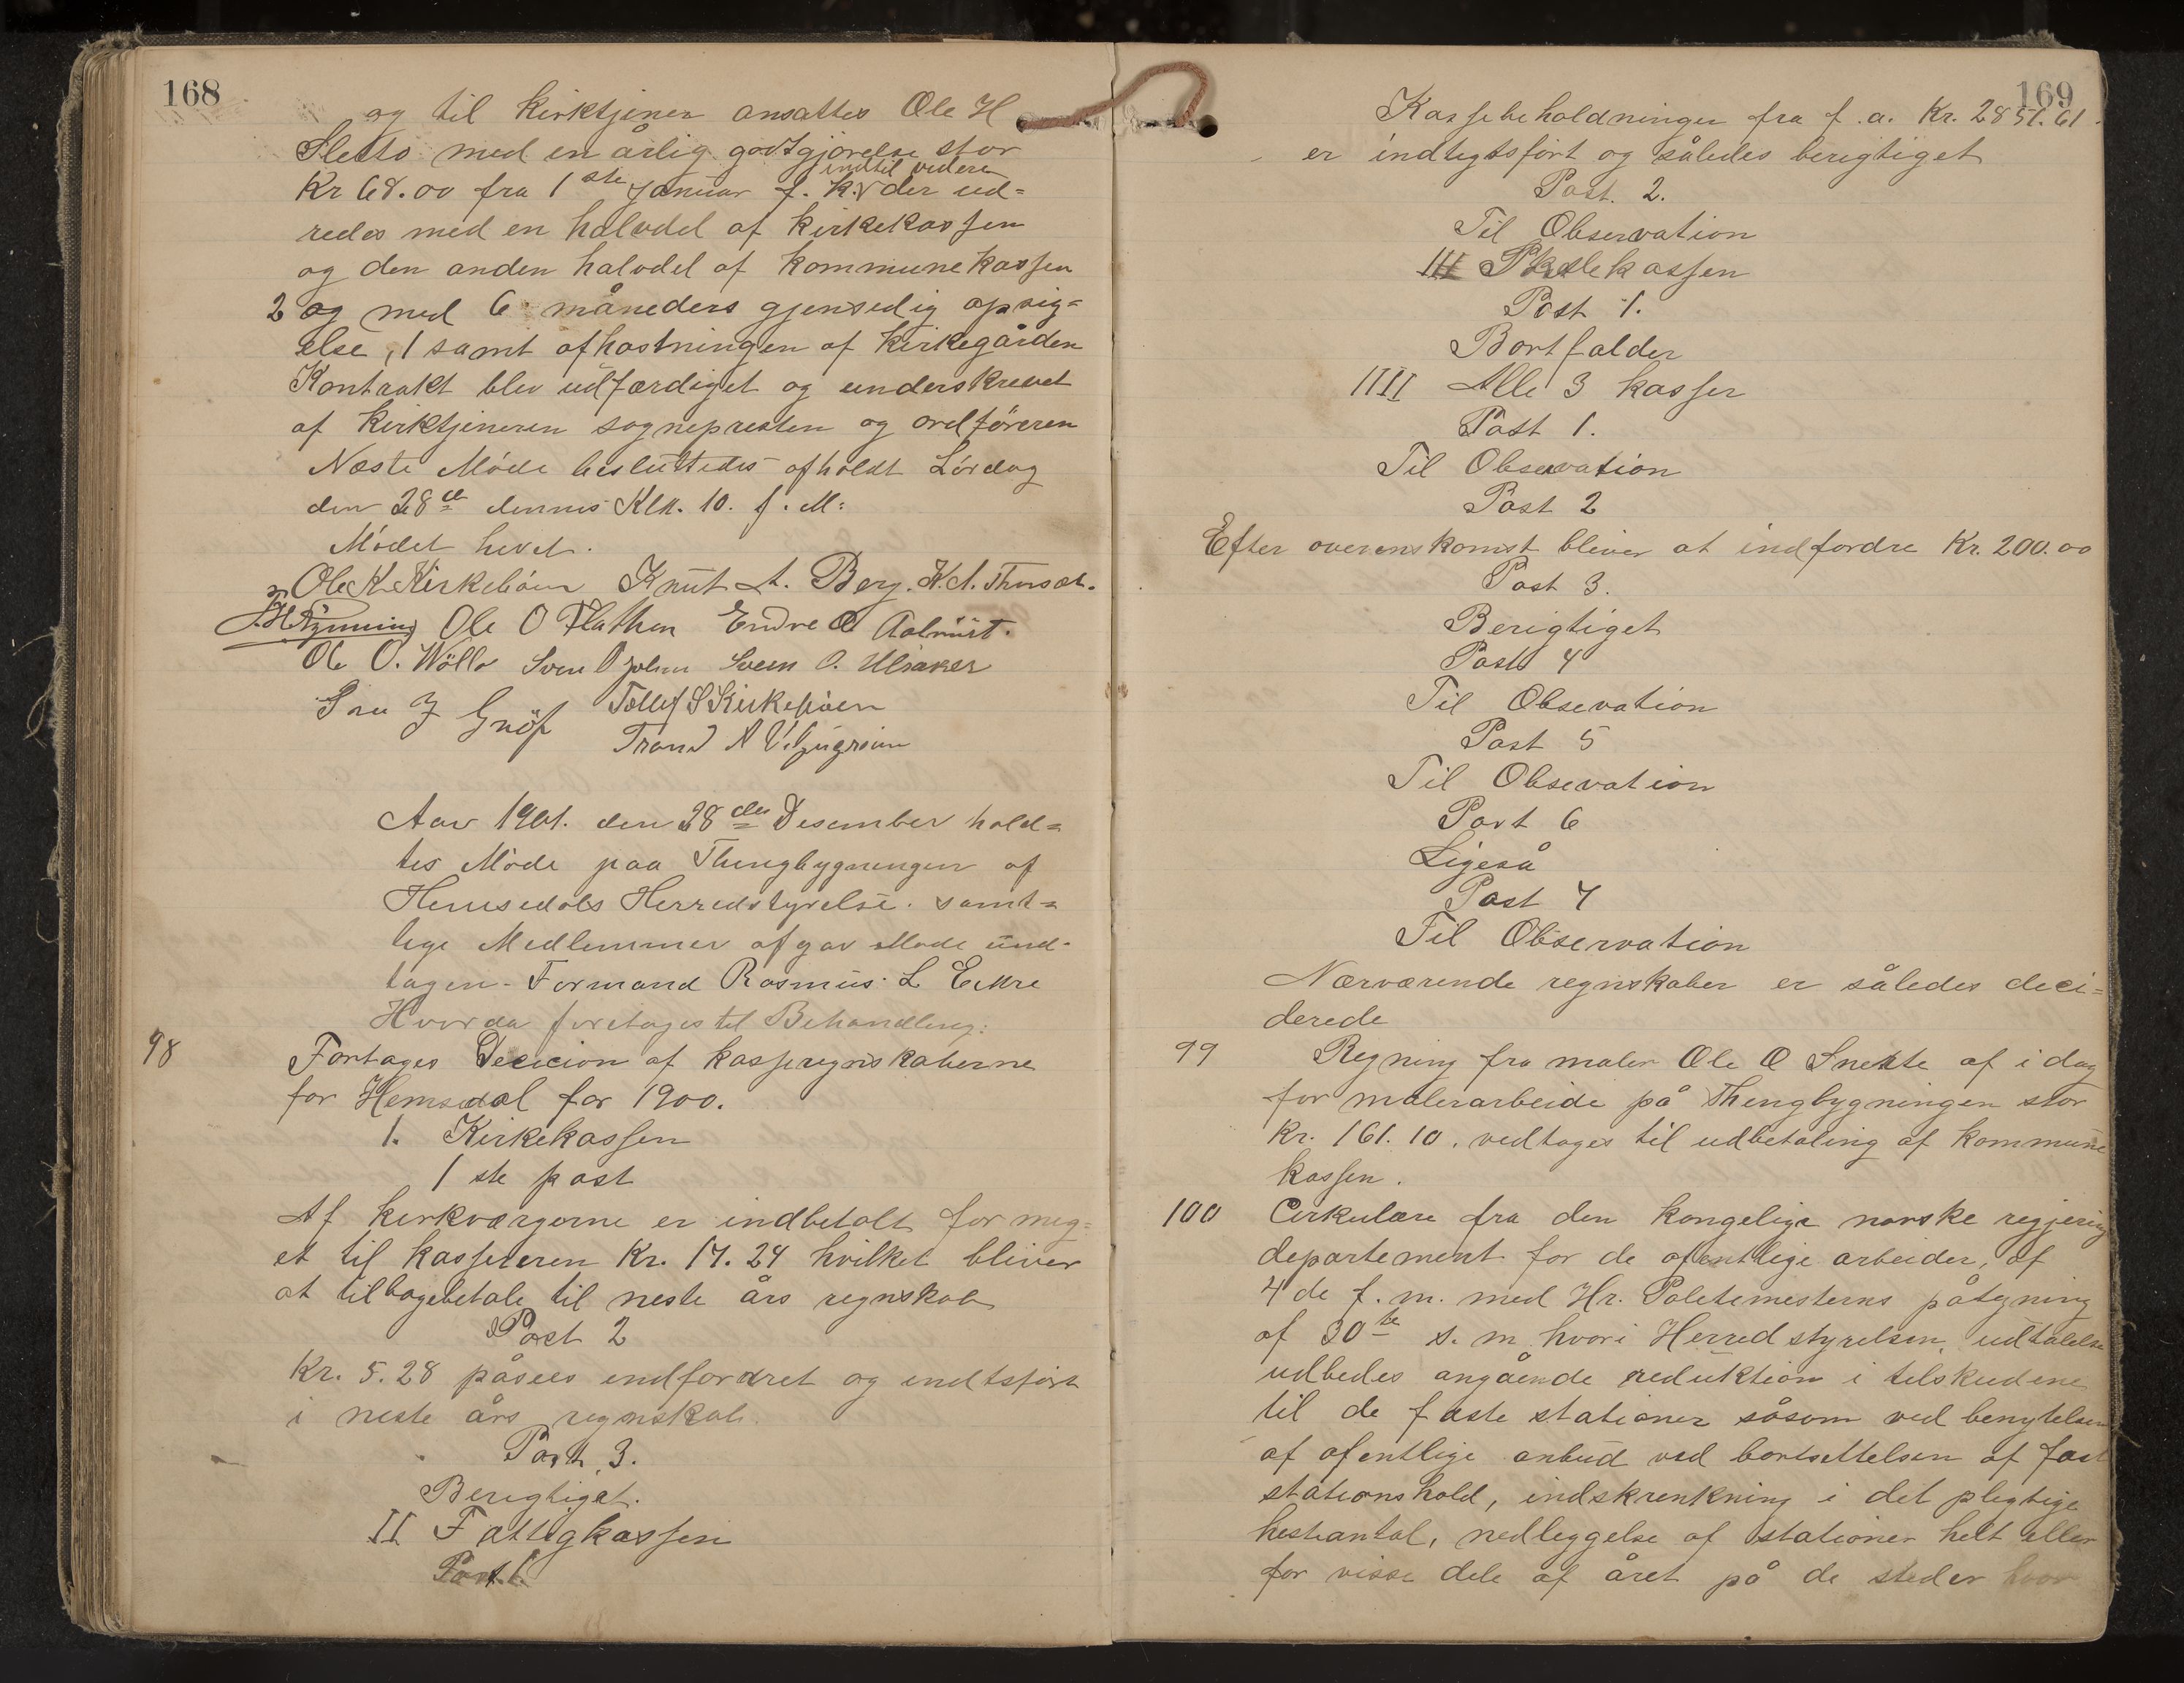 168
og til kirktjener ansattes Ole H
Sletto med en årlig godtgjørelse stor
indtil videre
Kr 68.00 fra 1ste Januar f. k. der ud=
redes med en halvdel af kirkekassen
og den anden halvdel af kommunekassen
2 og med 6 måneders gjensedig opsig=
else, 1 samt afhøstningen af kirkegården
Kontrakt blev udfærdiget og underskrevet
af kirktjeneren sognepresten og ordføreren
Næste Møde besluttedes afholdt Lørdag
den 28de dennes Klk. 10. f. M:
Mødet hevet.
Ole K Kirkebøen Knut A. Berg. K. A. Thorset.
Ole O Flathen Endre O
Ole O. Wøllo Sven O Svein O. Ulsaker
J Grøf Tollef S Kirkebøen
Trond A
Aar 1901. den 28des Desember hold=
tes Møde paa Thingbygningen af
Hemsedals Herredstyrelse. samt=
lige Medlemmer afgav Møde und-
tagen - Formand Rasmus L Eikre
Hvorda foretages til Behandling:
98
Fortages Decicion af kasseregnskaberne
for Hemsedal for 1900.
1. Kirkekassen
1 ste post
Af kirkværgerne er indbetalt for meg=
et til kassereren Kr. 17.24 hvilket bliver
at tilbagebetale til neste års regnskab
Post 2
Kr. 5.28 påsees indfordret og indtsført
i neste års regnskab.
Post 3.
Berigtiget.
II Fattigkassen
Post 1.
169
Kassebeholdningen fra f. a. Kr. 2851.61.
er indtegtsført og således berigtiget
Post. 2.
Til Observation
III Skolekassen
Post 1.
Bortfalder
IIII Alle 3 kasser
Post 1.
Til Observation
Post 2
Efter overenskomst bliver at indfordre Kr. 200.00
Post 3.
Berigtiget
Post 4
Til Obsevation
Post 5
Til Obsevation
Post 6
Ligeså
Post 7
Til Observation
Nærværende regnskaber er således deci=
derede
99
Regning fra maler Ole O Snekte af i dag
for malerarbeide på Thengbygningen stor
Kr. 161.10. vedtages til udbetaling af kommune
kassen.
100
Cirkulære fra den kongelige norske regjering
departement for de ofentlige arbeider, af
4de f. m. med Hr. Politemesterns påtegning
af 30te s. m hvori Herredstyrelsen, udtalelse
udbedes angående reduktion i tilskudene
til de faste stationer såsom ved benytelsen
af ofentlige anbud ved bortsettelsen af fast
stationshold, indskrenkning i det plegtige
hesteantal, nedleggelse af stationer helt eller
for visse dele af året på de steder hvor